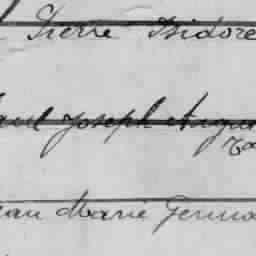 Pierre Isidore
Paul Joseph Augus
Jean Marie Germa